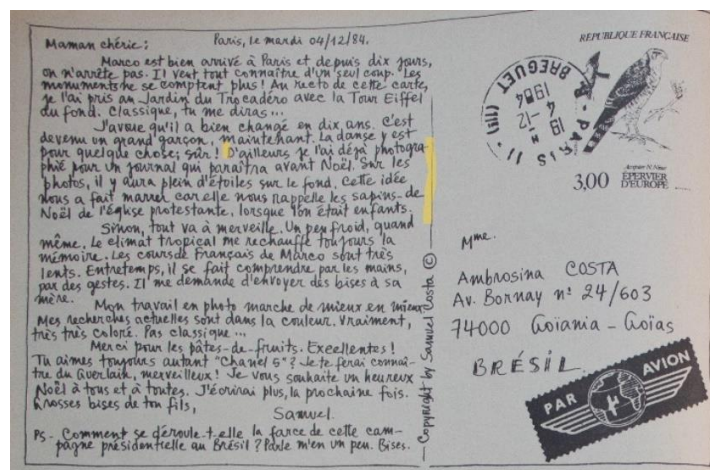 Maman chérie; Paris, le mardi 04/12/84.
Marco est bien arrivé à Paris et depuis dix jours,
on n'arrête pas. Il veut tout connaître d'un seul coup. Les
monuments ne se comptent plus! Au recto de cette carte,
je l'ai pris au Jardin du Trocadéro avec la Tour Eiffel
au fond. Classique, tu me diras...
J'avoue qu'il a bien changé en dix ans. C'est
devenu un grand garçon, maintenant. La danse y est
pour quelque chose; sûr! D'ailleurs je l'ai déjà photogra-
phié pour un journal qui paraîtra avant Noël. Sur les
photos, il y aura plein d'étoiles sur le fond. Cette idée
nous a fait marrer car elle nous rappelle les sapins-de
Noël de l'église protestante, lorsque l'on était enfants.
Sinon, tout va à merveille. Un peu froid, quand
même. Le climat tropical me rechauffe toujours la
mémoire. Les cours de Français de Marco sont très
lents. Entretemps, il se fait comprendre par les mains,
par des gestes. Il me demande d'envoyer des bises à sa
mère.
Mon travail en photo marche de mieux en mieux.
Mes recherches actuelles sont dans la couleur. Vraiment,
très très coloré. Pas classique...
Merci pour les pâtes-de-fruits. Excellentes!
Tu aimes toujours autant "Chanel 5"? Je te ferai connaî-
tre du Guerlain, merveilleux! Je vous souhaite un heureux
Noël à tous et à toutes. J'écrirai plus, la prochaine fois.
Grosses bises de ton fils,
Samuel.
Ps - Comment se déroule-t-elle la farce de cette cam-
pagne présidentielle au Brésil? Parle m'en un peu. Bises.
Copyright by Samuel Costa ©
REPUBLIQUE FRANCAISE
PARIS 11
BREGUET (11E)
19 H
4-12
1984
3,00
ÉPERVIER
D'EUROPE
Mme.
Ambrosina COSTA
Av. Bornay nº 24/603
74000 Goïania - Goïas
BRÉSIL
PAR AVION